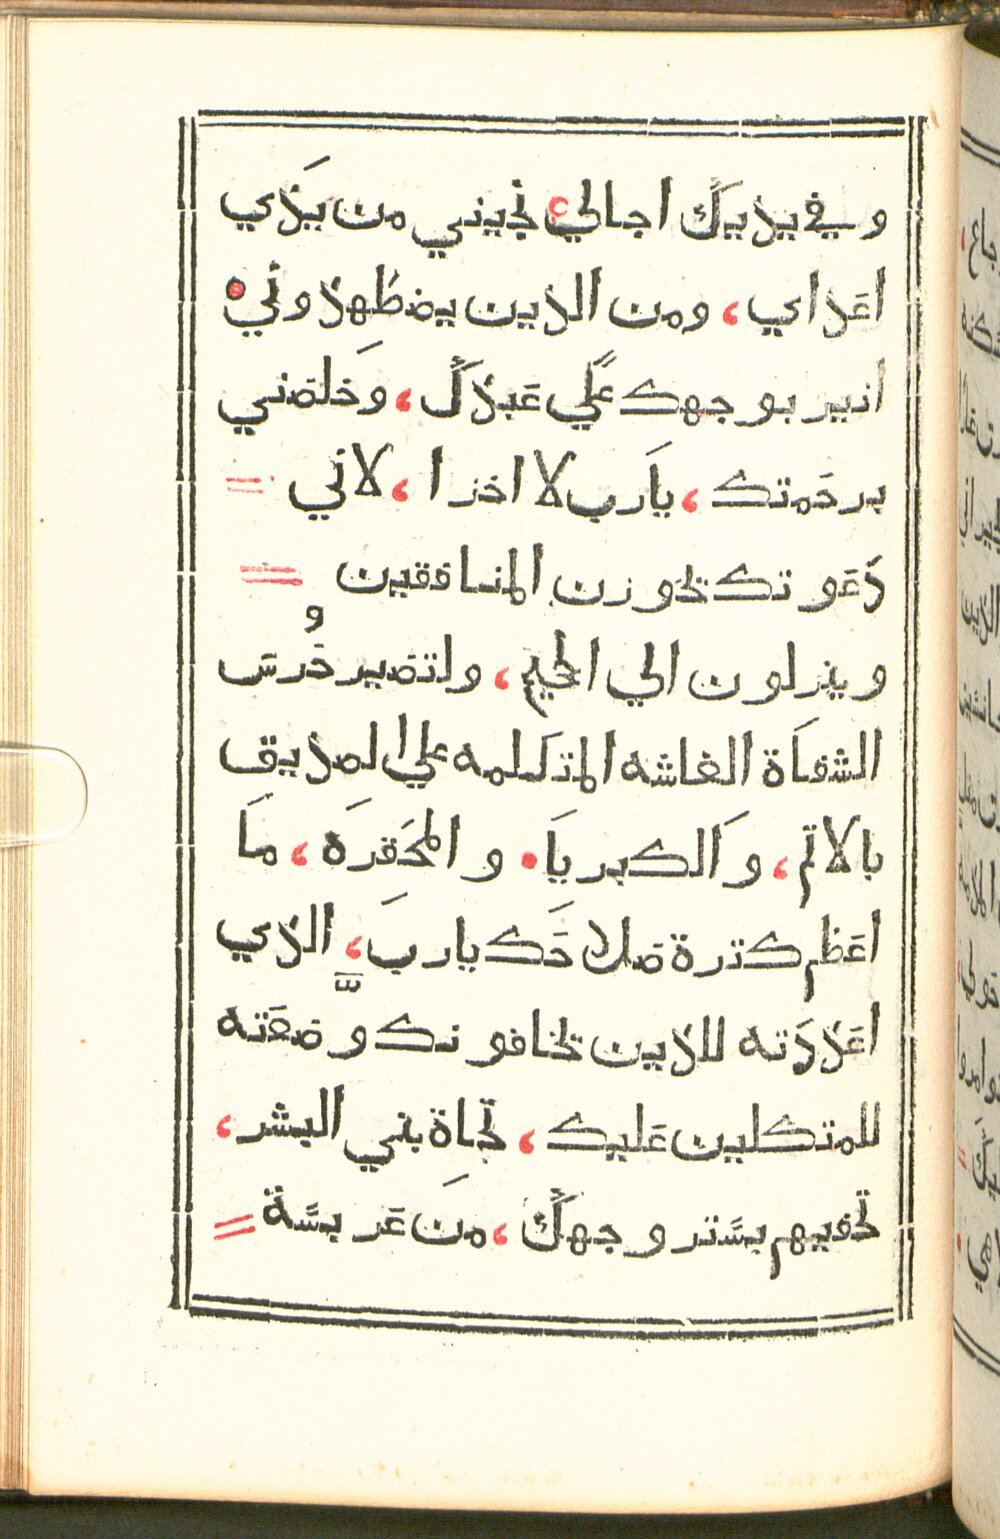 وفي يديك اجالي نجيني من يدي
اعداي، ومن الدين يضطهدوني
انير بوجهك علي عبدك، وخلصني
برحمتك، يارب لا اخزا، لاني
دعوتك تخوزن المنافقين
وينزلون الي الجحيم، ولتصير خُرس
الشفاة الغاشه المتكلمه علي الصديق
بالاتم، والكبريا. والمحقره، ما
اعظم كترة صلاحك يارب، الدي
اعددته للدين يخافونك وصنعته
للمتكلين عليك، تجاة بني البشر،
تخفيهم بستر وجهك، من عربسة